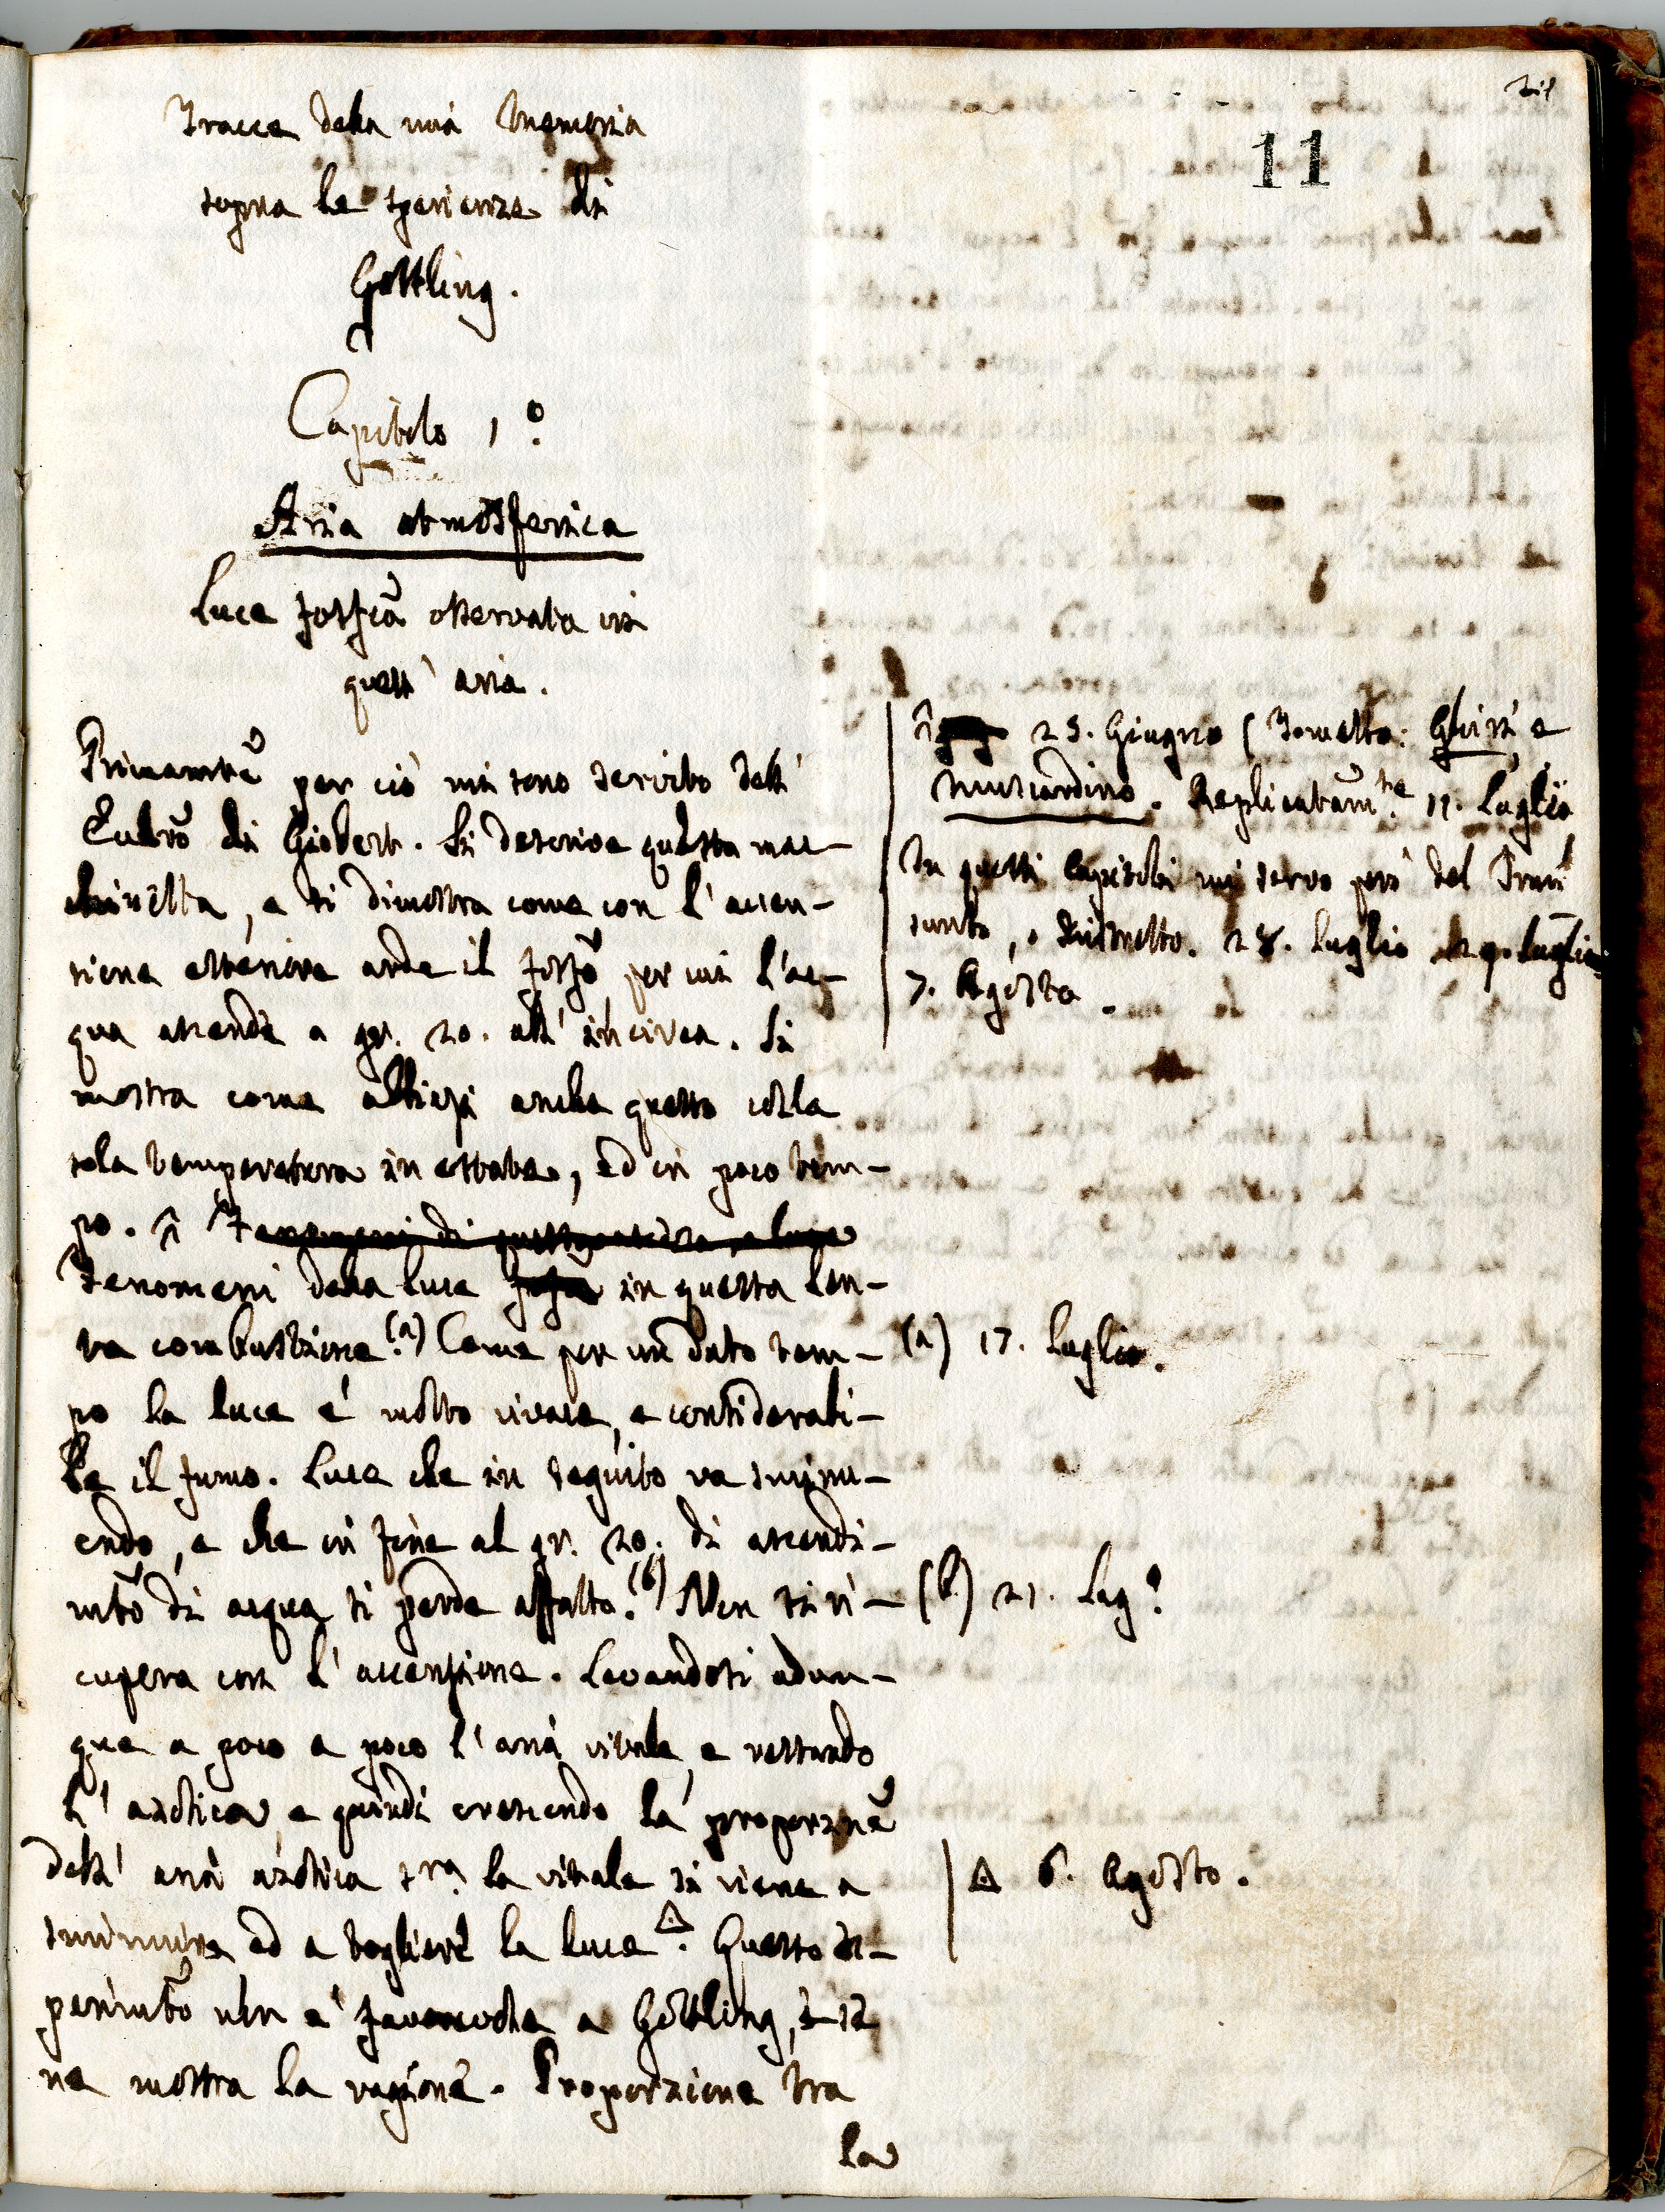 11
Tracce della mia Memoria
sopra le sperienze di
Göttling.
Capitolo 1.º
Aria atmosferica
Luce fosfca osservata in
quest' aria.
Primamte per ciò mi sono servito dell'
Eudro di Giobert. Si descrive questa mac-
chinetta, e si dimostra come con l'accen-
sione esteriore arde il fosfo per cui l'ac-
qua ascende a gr. 20. all' incirca. Si
mostra come attiepi anche questo colla
sola temperatura in estate, ed in poco tem-
po. Fenomeni di questa luce
Fenomeni della luce in questa len-
ta combustione.(a) Come per un dato tem-
po la luce è molto vivace, e considerabi-
le il fumo. Luce che in seguito va sminu-
endo, e che in fine al gr. 20. di ascendi-
mto di acqua si perde affatto.(b) Non si ri-
cupera con l'accensione. Levandosi adun-
que a poco a poco l'aria vitale, e restando
l'azotica, e quindi crescendo la proporzne
dell' aria azotica sra la vitale si viene a
sminuire ed a togliere la luce △. Questo es-
perimto non è favorevole a Göttling, e se
ne mostra la ragione. Proporzione tra
la
25. Giugno (Fornello: Ghisi e
Muscardino. Replicatamte. 11. Luglio
In questi Capitoli mi servo però del Tran
sunto, o Ristretto. 28. Luglio 29. Luglio
7. Agosto.
(a) 17. Luglio.
(b) 21. Lugo
△ 6. Agosto.